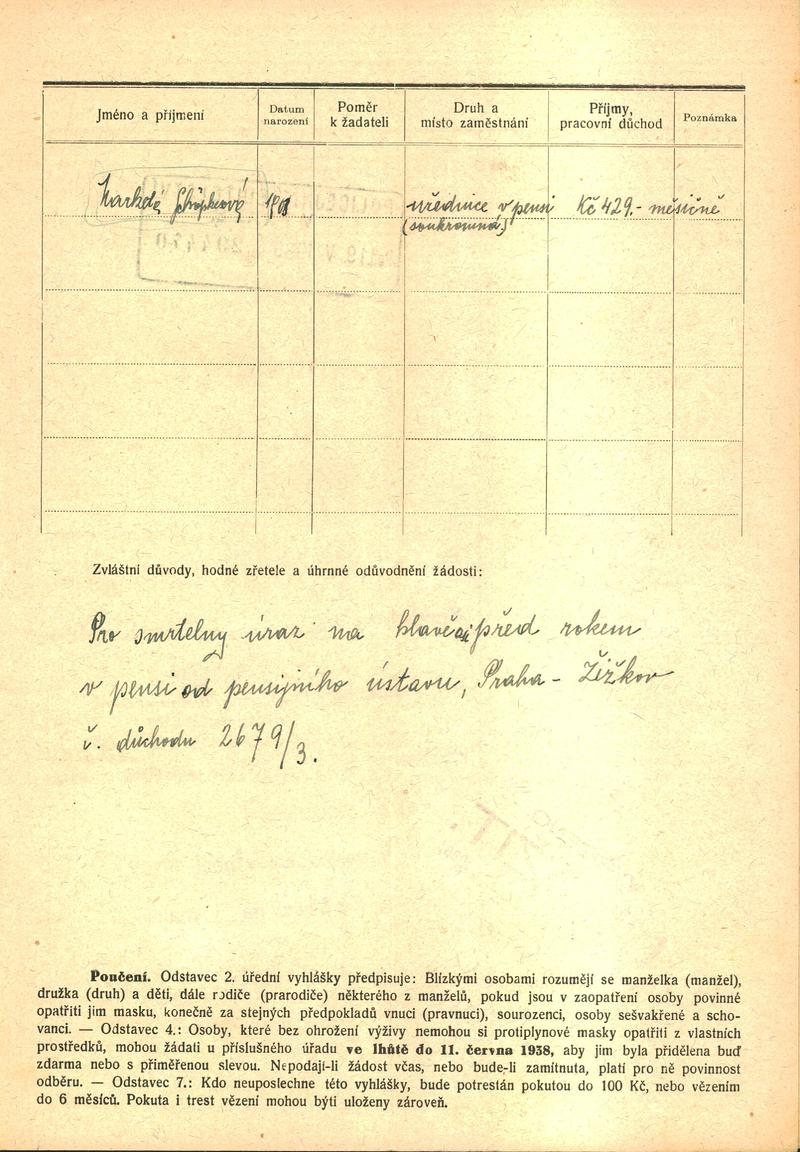 Jméno a příjmení
Datum narození
Poměr k žadateli
Druh a místo zaměstnání
Příjmy, pracovní důchod
Poznámka
1901
úřednice v pensi
(soukromná)
Kč 429.- měsíčně
Zvláštní důvody, hodné zřetele a úhrnné odůvodnění žádosti:
Pro smrtelný úraz na hlavě před rokem
v pensi od pensijního ústavu, Praha - Žižkov
č. důchodu 2679/3.
Poučení. Odstavec 2. úřední vyhlášky předpisuje: Blízkými osobami rozumějí se manželka (manžel),
družka (druh) a děti, dále rodiče (prarodiče) některého z manželů, pokud jsou v zaopatření osoby povinné
opatřiti jim masku, konečně za stejných předpokladů vnuci (pravnuci), sourozenci, osoby sešvakřené a scho-
vanci. — Odstavec 4.: Osoby, které bez ohrožení výživy nemohou si protiplynové masky opatřiti z vlastních
prostředků, mohou žádati u příslušného úřadu ve lhůtě do 11. června 1938, aby jim byla přidělena buď
zdarma nebo s přiměřenou slevou. Nepodají-li žádost včas, nebo bude-li zamítnuta, platí pro ně povinnost
odběru. — Odstavec 7.: Kdo neuposlechne této vyhlášky, bude potrestán pokutou do 100 Kč, nebo vězením
do 6 měsíců. Pokuta i trest vězení mohou býti uloženy zároveň.